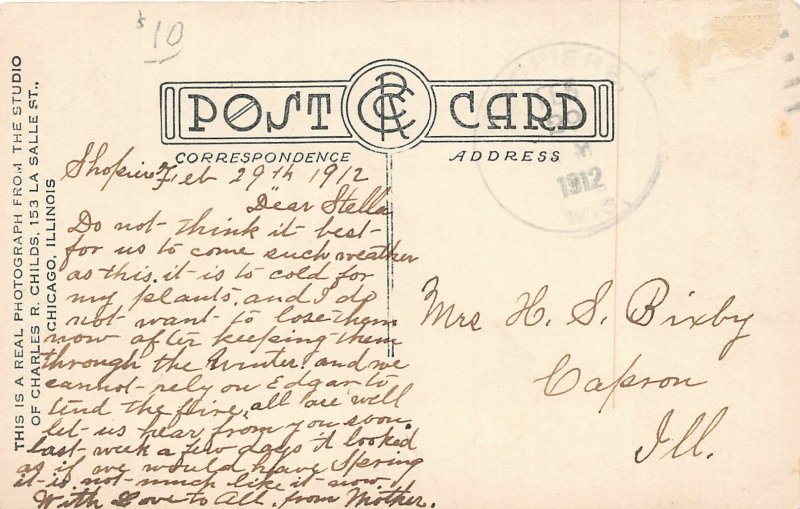 $10
THIS IS A REAL PHOTOGRAPH FROM THE STUDIO
OF CHARLES R. CHILDS, 153 LA SALLE ST.,
CHICAGO, ILLINOIS
POST CARD
CRC
CORRESPONDENCE
ADDRESS
1912
WIS.
Shopiere Feb 29th 1912
Dear Stella
Do not think it best
for us to come such weather
as this. it is to cold for
my plants, and I do
not want to lose them
now after keeping them
through the Winter. and we
cannot rely on Edgar to
tend the fire, all are well
let us hear from you soon.
last week a few days it looked
as if we would have Spring
it is not much like it now
With Love to All. from Mother.
Mrs H. S. Bixby
Capron
Ill.